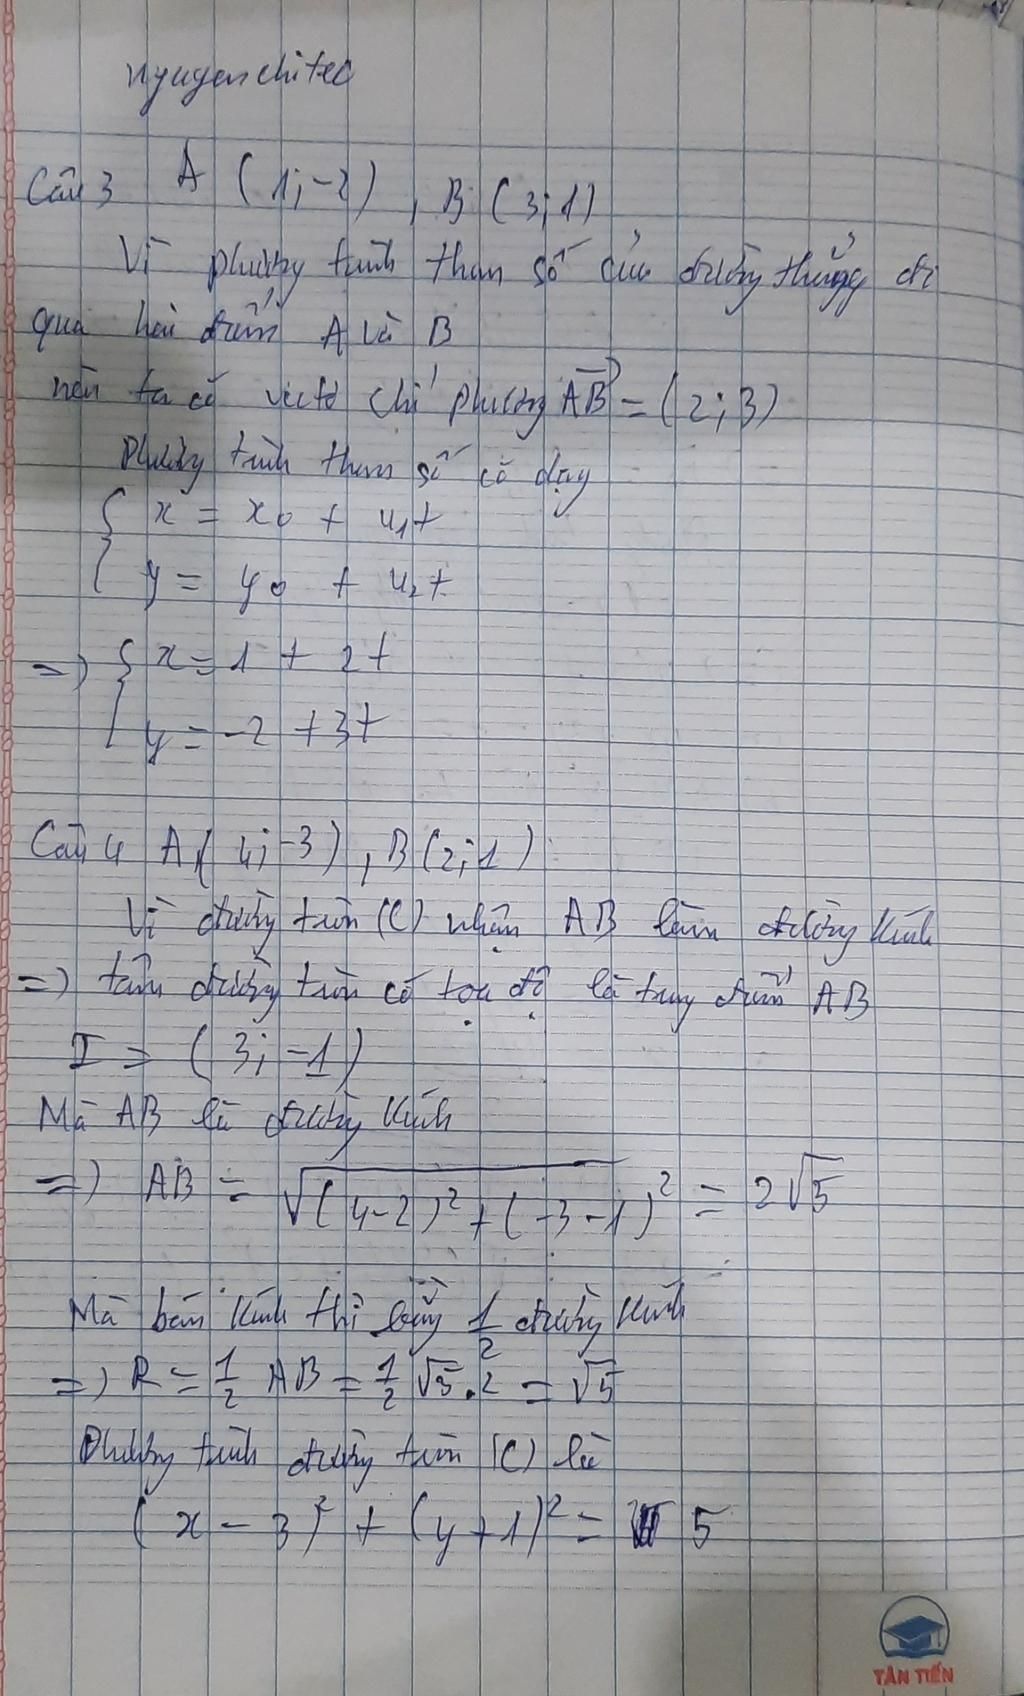 nguyenchitec
Câu 3 A (1;-2), B (3;1)
Vì phương trình tham số của đường thẳng đi
qua hai điểm A và B
nên ta có vectơ chỉ phương AB = (2;3)
Phương trình tham số có dạng
{ x = x₀ + u₁t
y = y₀ + u₂t
=> { x = 1 + 2t
y = -2 + 3t
Câu 4 A(4;-3), B(2;1)
Vì đường tròn (C) nhận AB làm đường kính
=> tâm đường tròn có tọa độ là trung điểm AB
I = (3;-1)
Mà AB là đường kính
=> AB = √(4-2)² + (-3-1)² = 2√5
Mà bán kính thì bằng 1/2 đường kính
=> R = 1/2 AB = 1/2 √5.2 = √5
Phương trình đường tròn (C) là
(x - 3)² + (y+1)² = 5
TÂN TIẾN